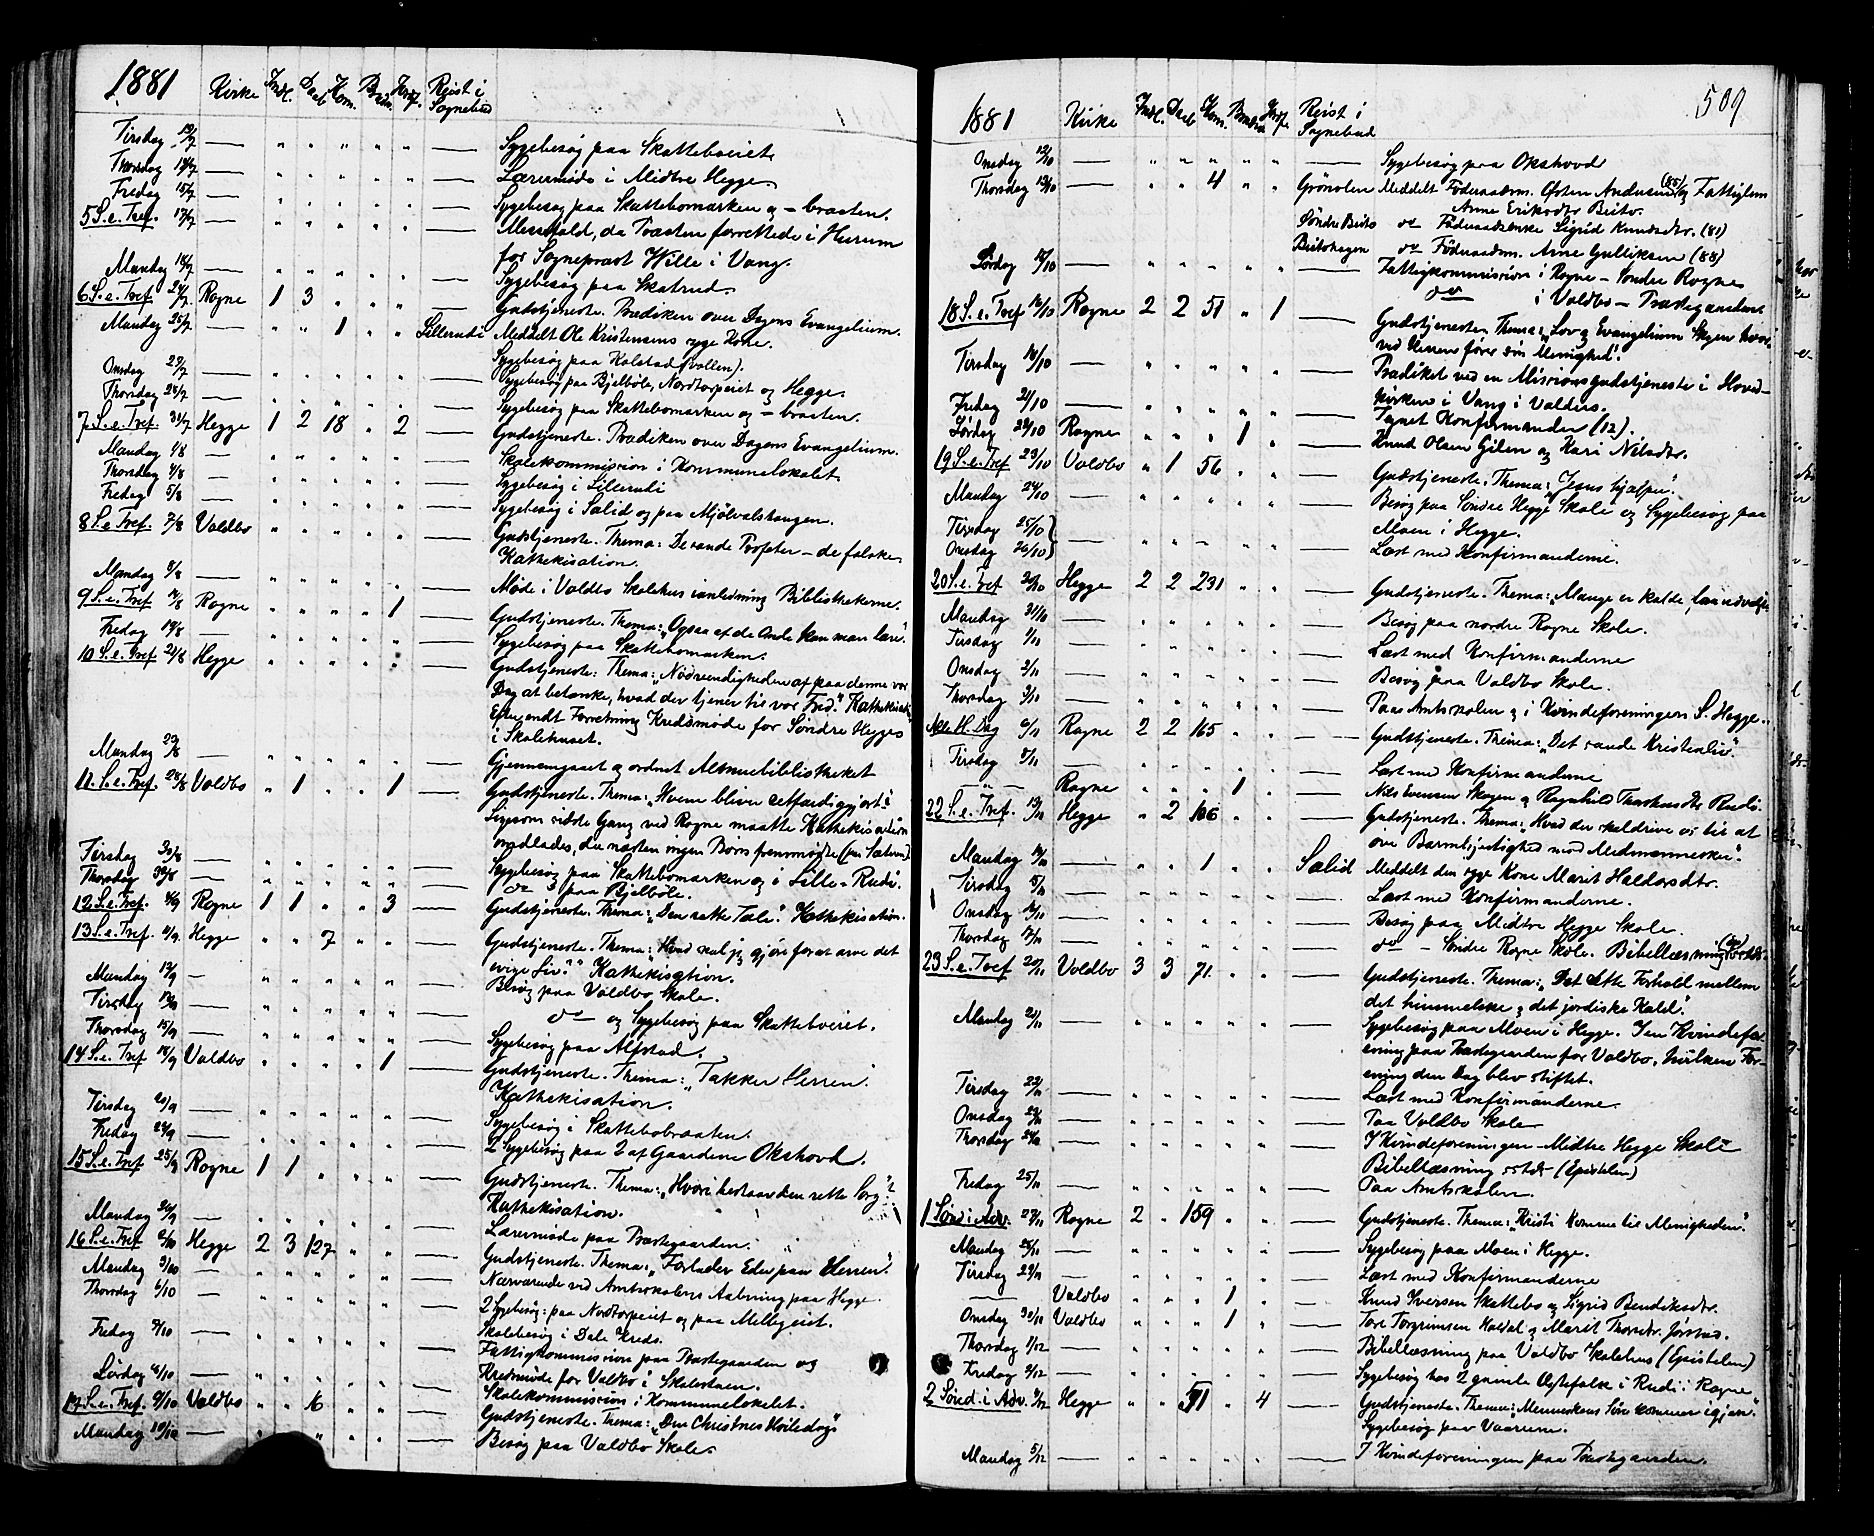 1881 Kirke Indl. Daab Kom. Brud. Introd. Reist i Sognebud
Tirsdag 12/7 — " " " " " — Sygebesøg paa Skattebøeiet
Thorsdag 14/7 — " " " " " — Lærermøde i Midtre Hegge.
Fredag 15/7 — " " " " " — Sygebesøg paa Skattebomarken og – braaten.
5 S. e. Tref. 17/7 — " " " " " — Messefald, da Præsten forrettede i Hurum
for Sogneprest Wille i Vang.
Mandag 18/7 — " " " " " — Sygebesøg paa Skatrud.
6 S. e. Tref 24/7 Rogne 1 3 " " " — Gudstjeneste. Prædiken over Dagens Evangelium.
Mandag 25/7 — " " 1 " " Lillerudi Meddelt Ole Kristensens syge Kone.
Sygebesøg paa Kalstad (vollen).
Onsdag 27/7 — " " " " " — Sygebesøg paa Bjelbøle, Nordtorpeiet og Hegge.
Thorsdag 28/7 — " " " " " — Sygebesøg paa Skattebomarken og – braaten.
7 S. e. Tref. 31/7 Hegge 1 2 18 " 2 — Gudstjeneste. Prædiken over Dagens Evangelium.
Mandag 1/8 — " " " " " — Skolekommission i Kommunelokalet.
Thorsdag 4/8 — " " " " " — Sygebesøg i Lillerudi
Fredag 5/8 — " " " " " — Sygebesøg i Salid og paa Mjølvalshaugen.
8 S. e Tref. 7/8 Voldbo " " " " " — Gudstjeneste. Thema: De sande Profeter – de falske.
Kathekisation.
Mandag 8/8 — " " " " " — Møde i Voldbo Skolehus i anledning Bibliothekerne.
9 S. e. Tref 14/8 Rogne " " " " 1 — Gudstjeneste. Thema: „Ogsaa af de Onde kan man lære".
Fredag 19/8 — " " " " " — Sygebesøg paa Skattebomarken.
10 S. e. Tref 21/8 Hegge " " " " " — Gudstjeneste: Thema: „Nødvendigheden af paa denne vor
Dag at betænke, hvad der tjener til vor Fred." Kathekisat.
Efter endt Forretning Kredsmøde for Søndre Hegges
i Skolehuset.
Mandag 22/8 — " " " " " — Gjennemgaaet og ordnet Almuebibliotheket
11. S. e. Tref 28/8 Voldbo " 1 " " 1 — Gudstjeneste. Thema: „Hvem bliver retfærdiggjort?"
Ligesom sidste Gang ved Rogne maatte Kathekisation
undlades, da næsten ingen Børn fremmødte (paa Sæteren)
Tirsdag 30/8 — " " " " " — Sygebesøg paa Skattebomarken og i Lille-Rudi.
Thorsdag — " " " " " — do paa Bjelbøle.
12 S. e. Tref. 4/9 Rogne 1 1 " " 3 — Gudstjeneste. Thema: „Den rette Tale". Kathekisation.
13 S. e. Tref 11/9 Hegge " " 7 " " — Gudstjeneste. Thema: „Hvad skal jeg gjøre for at arve det
evige Liv?" Kathekisation.
Mandag 12/9 — " " " " " — Besøg paa Voldbo Skole.
Tirsdag 13/9 — " " " " " — do og Sygebesøg paa Skattebøeiet.
Thorsdag 15/9 — " " " " " — Sygebesøg paa Alfstad.
14 S. e. Tref 18/9 Voldbo " " " " 1 — Gudstjeneste. Thema: „Takker Herren".
Kathekisation.
Tirsdag 20/9 — " " " " " — Sygebesøg i Skattebobraaten.
Fredag — " " " " " — 2 Sygebesøg paa 2 af Gaardene Okshovd.
15 S. e. Tref 25/9 Rogne 1 1 " " " — Gudstjeneste. Thema: „Hvori bestaar den rette Sorg"?
Kathekisation.
Mandag 26/9 — " " " " " — Lærermøde paa Præstegaarden.
16 S. e. Tref 2/10 Hegge 2 3 127 " " — Gudstjeneste. Thema: „Forlader Eder paa Herren".
Mandag 3/10 — " " " " " — Nærværende ved Amtsskolens Aabning paa Hegge.
Thorsdag 6/10 — " " " " " — 2 Sygebesøg: paa Nordtorpeiet og paa Mellegeist.
Skolebesøg i Dale Kreds.
Fredag 7/10 — " " " " " — Fattigkommission paa Præstegaarden og
Kredsmøde for Voldbo i Skolestuen.
Lørdag 8/10 — " " " " " — Skolekommission i Kommunelokalet.
17 S. e. Tref. 9/10 Voldbo " " 6 " " — Gudstjeneste. Thema: „Den Christnes Hviledag".
Mandag 10/10 — " " " " " — Besøg paa Voldbo Skole.
509
1881 Kirke Indl. Daab Kom. Brudev. Introd. Reist i Sognebud
Onsdag 12/10 — " " " " " — Sygebesøg paa Okshovd
Thorsdag 13/10 — " " 4 " " Grønolen Meddelt Føderaadsm. Østen Andersen (85) og Fattiglem
Anne Eriksdtr Beito.
Søndre Beito do Føderaadsenke Sigrid Knudsdtr. (81)
Beitohagen do Føderaadsm. Arne Gulliksen (88)
Lørdag 15/10 — " " " " " — Fattigkommission i Rogne – Søndre Rogne
do i Voldbo – Præstegaarden.
18 S. e. Tref 16/10 Rogne 2 2 51 " 1 — Gudstjeneste. Thema: „Lov og Evangelium Stegen hvor-
ved Herren fører sin Menighed".
Tirsdag 18/10 — " " " " " — Prædiket ved en Missionsgudstjeneste i Hoved-
kirken i Vang i Valders.
Fredag 21/10 — " " " " " — Tegnet Konfirmander (12).
Lørdag 22/10 Rogne " " " 1 " — Knud Olsen Gilen og Kari Nilsdtr.
19 S. e. Tref 23/10 Voldbo " 1 56 " " — Gudstjeneste. Thema: „Jesus hjælper".
Mandag 24/10 — " " " " " — Besøg paa Søndre Hegge Skole og Sygebesøg paa
Moen i Hegge.
Tirsdag 25/10
Onsdag 26/10 — " " " " " — Læst med Konfirmanderne.
20 S. e. Tref 30/10 Hegge 2 2 231 " " — Gudstjeneste. Thema: „Mange er kaldte, faa udvalgte
Mandag 31/10 — " " " " " — Besøg paa nordre Rogne Skole.
Tirsdag 1/11 — " " " " " — Læst med Konfirmanderne
Onsdag 2/11 — " " " " " — Besøg paa Voldbo Skole.
Thorsdag 3/11 — " " " " " — Paa Amtsskolen og i Kvindeforeningen S. Hegge.
Alle H. Dag 6/11 Rogne 2 2 165 " " — Gudstjeneste. Thema: „Det sande Kristenliv".
Tirsdag 8/11 — " " " " " — Læst med Konfirmanderne
— " — Rogne " " " 1 " — Nils Evensen Skogen og Ragnhild Thorstensdtr Rudi.
22 S. e. Tref. 13/11 Hegge " 2 166 " " — Gudstjeneste. Thema: „Hvad der skal drive os til at
øve Barmhjertighed mod Medmennesker".
Mandag 14/11 — " " 1 " " Salid Meddelt den syge Kone Marit Haldorsdtr.
Tirsdag 15/11 — " " " " " — Læst med Konfirmanderne.
Onsdag 16/11 — " " " " " — Besøg paa Midtre Hegge Skole.
Thorsdag 17/11 — " " " " " — do – Søndre Rogne Skole. Bibellæsning
23 S. e. Tref 20/11 Voldbo 3 3 71 " " — Gudstjeneste. Thema: „Det rette Forhold mellem
det himmelske og det jordiske Kald".
Mandag 21/11 — " " " " " — Sygebesøg paa Moen i Hegge. I en Kvindefor-
ening paa Præstegaarden for Voldbo, hvilken For-
ening den Dag blev stiftet.
Tirsdag 22/11 — " " " " " — Læst med Konfirmanderne.
Onsdag 23/11 — " " " " " — Paa Voldbo Skole
Thorsdag 24/11 — " " " " " — I Kvindeforeningen – Midtre Hegge Skole
Bibellæsning (Epistelen)
Fredag 25/11 — " " " " " — Paa Amtsskolen.
1 Sønd. i Adv. 27/11 Rogne 2 " 159 " " — Gudstjeneste. Thema: „Kristi Komme til Menigheden".
Mandag 28/11 — " " " " " — Sygebesøg paa Moen i Hegge.
Tirsdag 29/11 — " " " " " — Læst med Konfirmanderne
— Voldbo " " " 1 " — Knud Iversen Skattebo og Sigrid Bendiksdtr.
Onsdag 30/11 Voldbo " " " 1 " — Tore Torgrimsen Haldal og Marit Thorsdtr. Jørstad.
Thorsdag 1/12 — " " " " " — Bibellæsning paa Voldbo Skolehus (Epistelen)
Fredag 2/12 — " " " " " — Sygebesøg hos 2 gamle Ægtefolk i Rudi i Rogne
2 Sønd. i Adv. 4/12 Hegge " " " 4 — Gudstjeneste. Thema: „Menneskens Søn kommer igjen".
Sygebesøg paa Vaarene.
Mandag 5/12 — " " " " " — I Kvindeforeningen paa Præstegaarden.